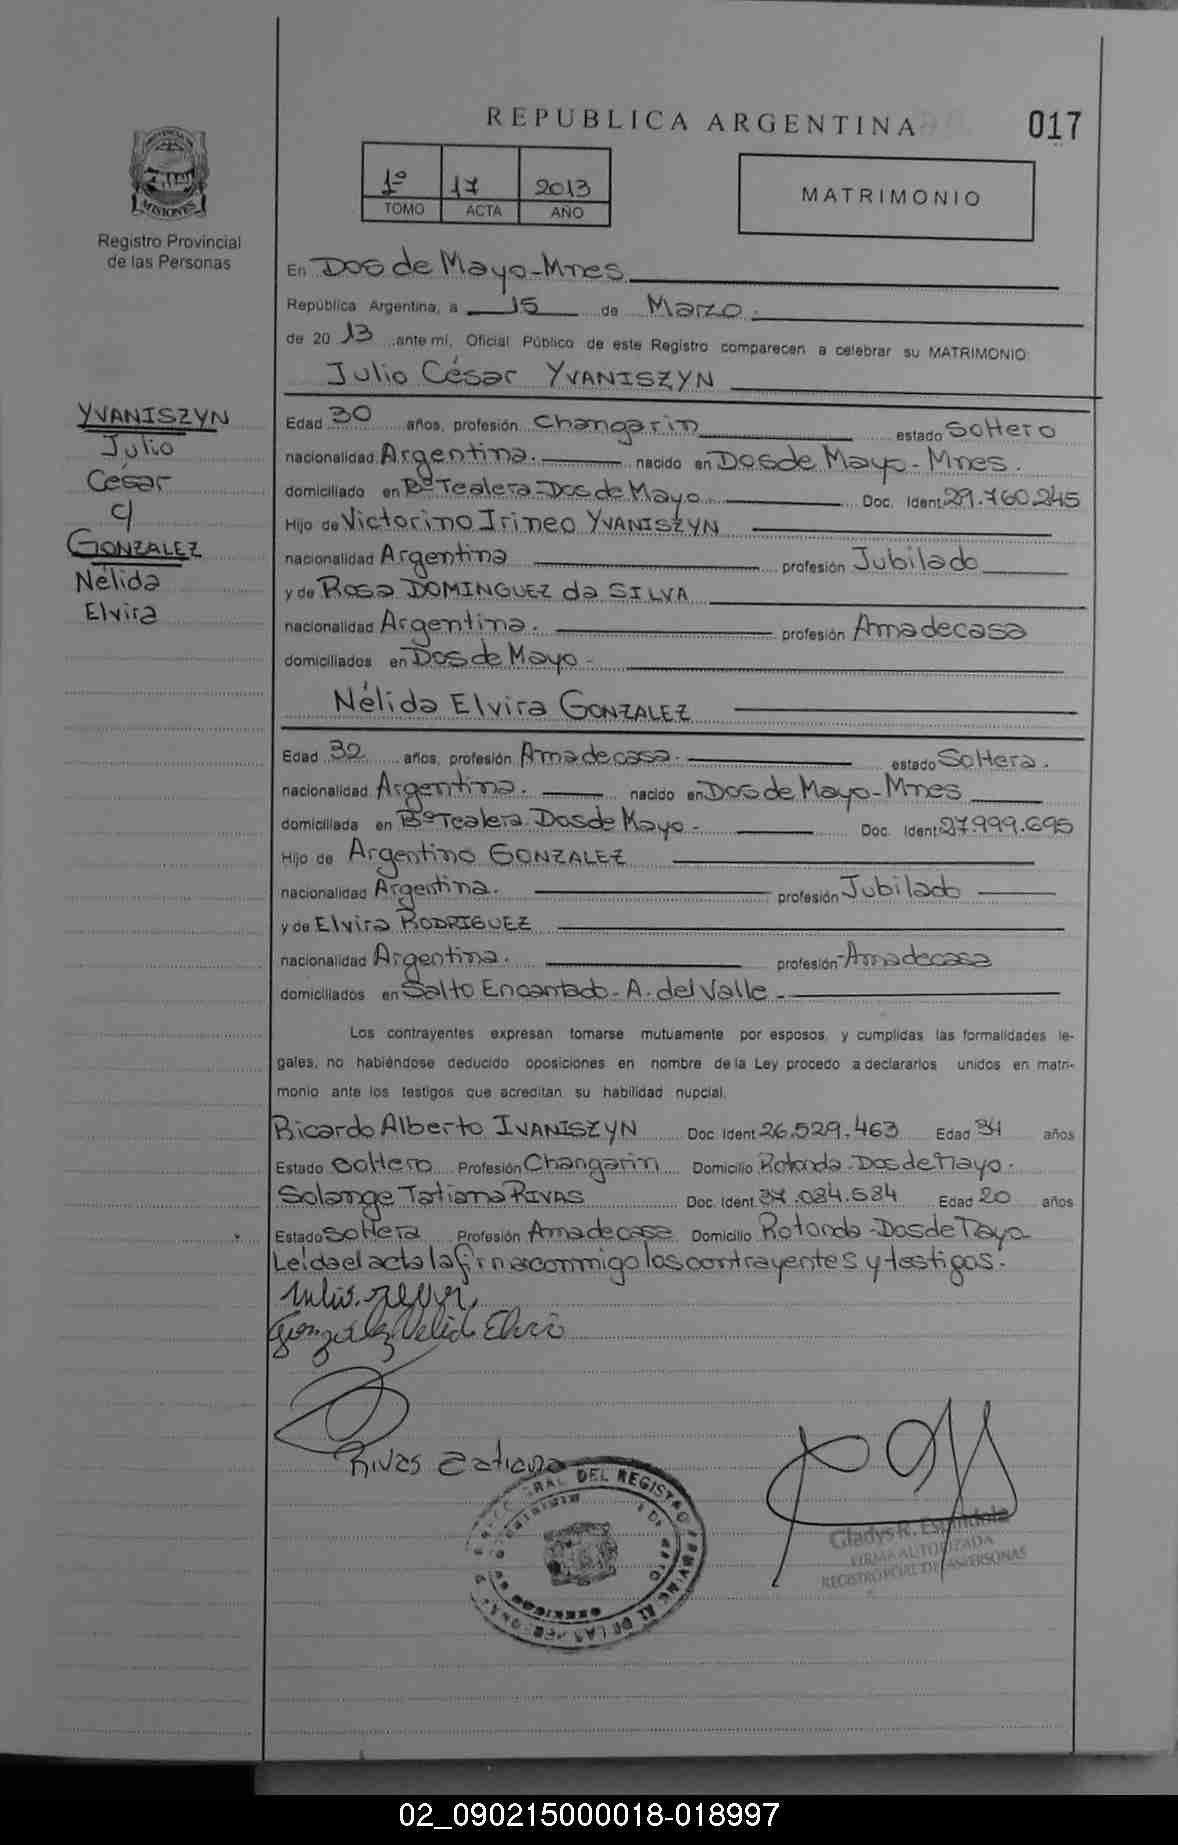 REPUBLICA ARGENTINA
017
PROVINCIA
MISIONES
Registro Provincial
de las Personas
1º 17 2013
TOMO ACTA AÑO
MATRIMONIO
En Dos de Mayo-Mnes
República Argentina, a 15 de Marzo.
de 20 13 ante mí, Oficial Público de este Registro comparecen a celebrar su MATRIMONIO:
Julio César YVANISZYN
YVANISZYN
Julio
César
c/
GONZALEZ
Nélida
Elvira
Edad 30 años, profesión Changarin estado Soltero
nacionalidad Argentina. nacido en Dos de Mayo - Mnes.
domiciliado en Bº Tealera-Dos de Mayo Doc. Ident. 29.760.245
Hijo de Victorino Irineo YVANISZYN
nacionalidad Argentina profesión Jubilado
y de Rosa DOMINGUEZ da SILVA
nacionalidad Argentina. profesión Amadecasa
domiciliados en Dos de Mayo -
Nélida Elvira GONZALEZ
Edad 32 años, profesión Amadecasa. estado Soltera.
nacionalidad Argentina. nacido en Dos de Mayo-Mnes
domiciliada en Bº Tealera Dos de Mayo - Doc. Ident. 27.999.695
Hijo de Argentino GONZALEZ
nacionalidad Argentina. profesión Jubilado
y de Elvira RODRIGUEZ
nacionalidad Argentina. profesión Amadecasa
domiciliados en Salto Encantado - A. del Valle -
Los contrayentes expresan tomarse mutuamente por esposos, y cumplidas las formalidades le-
gales, no habiéndose deducido oposiciones en nombre de la Ley procedo a declararlos unidos en matri-
monio ante los testigos que acreditan su habilidad nupcial.
Ricardo Alberto IVANISZYN Doc. Ident. 26.529.463 Edad 34 años
Estado Soltero Profesión Changarin Domicilio Rotonda-Dos de Mayo.
Solange Tatiana RIVAS Doc. Ident. 37.084.584 Edad 20 años
Estado Soltera Profesión Amadecasa Domicilio Rotonda-Dos de Mayo
Leída el acta la firma conmigo los contrayentes y testigos.
Gonzalez Nelida Elvira
Rivas Tatiana
DEL REGISTRO PROVINCIAL DE LAS PERSONAS
Gladys R. Espindola
FIRMA AUTORIZADA
REGISTRO PCIAL. DE LAS PERSONAS
02_090215000018-018997